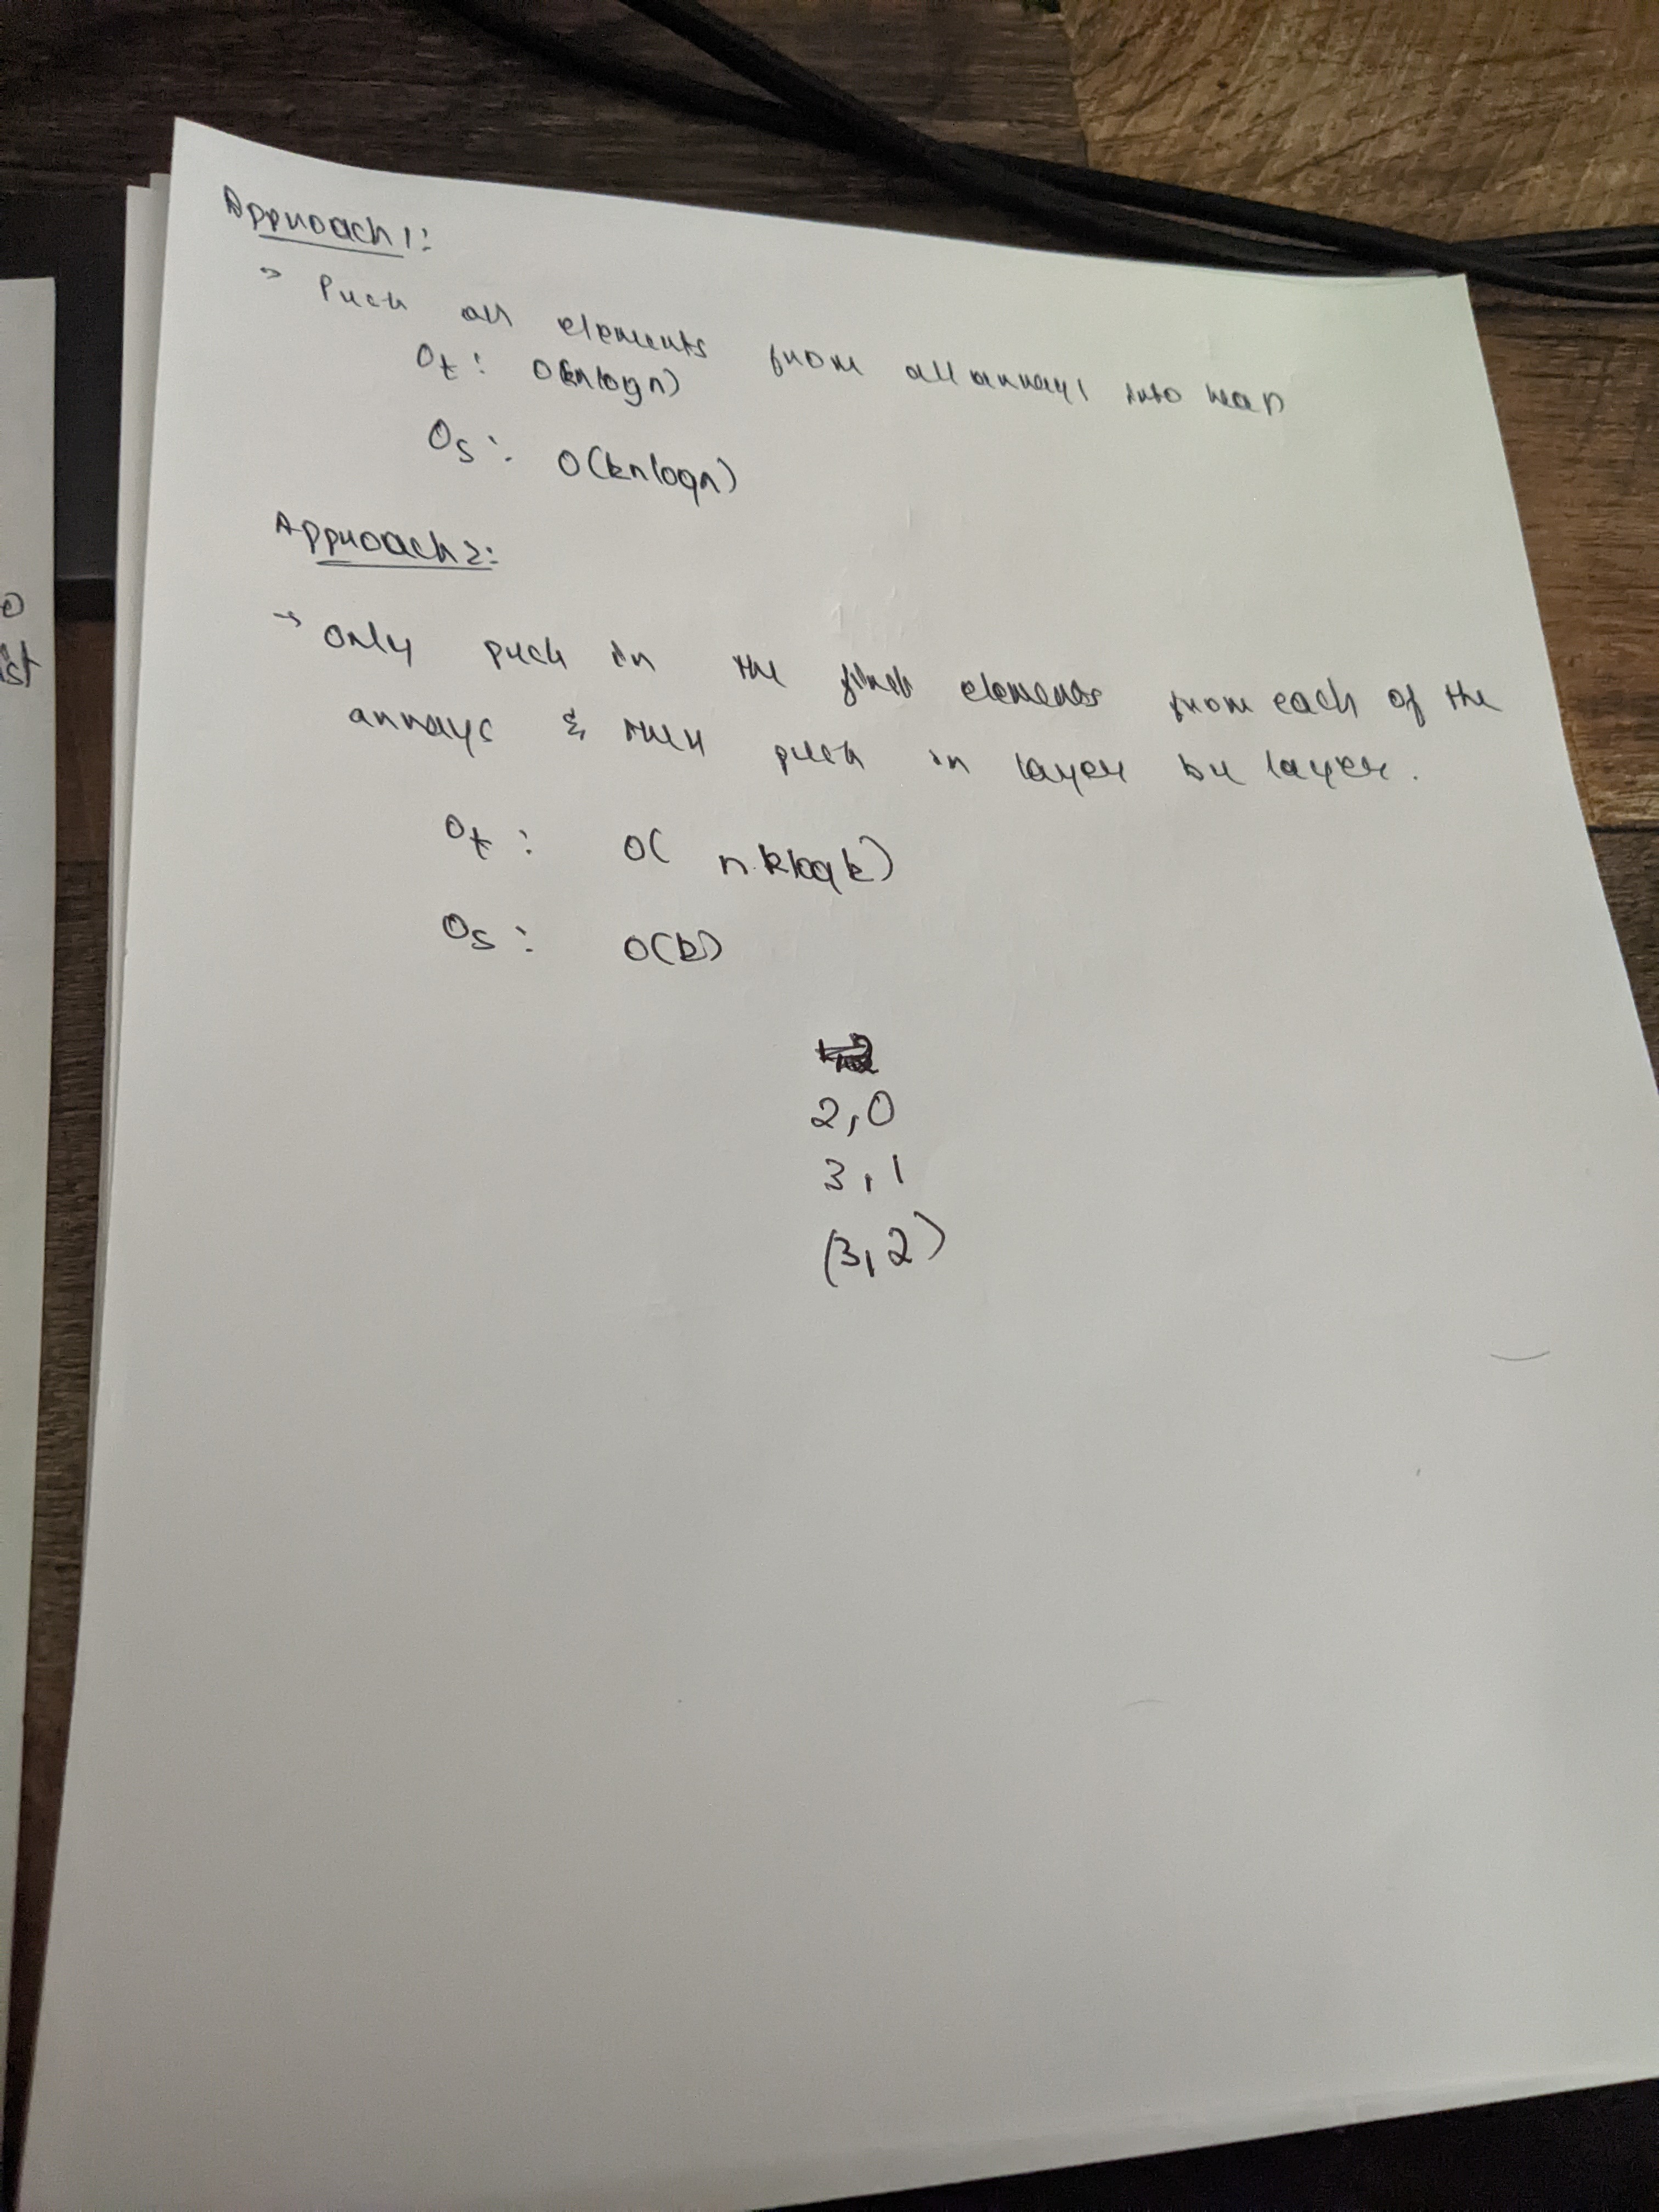 Approach 1:
→ Push all elements from all arrays into heap
Ot : O(kn log n)
Os : O(kn log n)
Approach 2:
→ Only push in the first elements from each of the
arrays & then push in layer by layer.
Ot : O( n.k log k)
Os : O(k)
2,0
3,1
(3,2)
ist